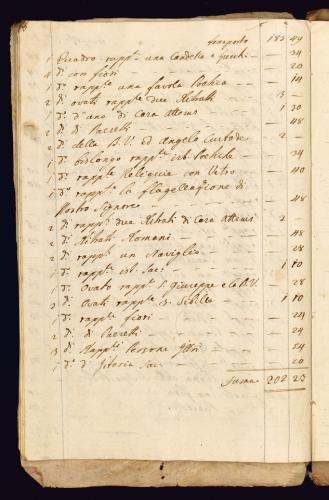 trasporto 183 49
1 Quadro rapp.te una Candella e — 34
4 d.i con fiori — 20
1 d.o rapp.te una favola Poetica — 14
2 d.i ovati rapp.te due Ritratti 3 —
1 d.o d'uno di Casa Attems 1 30
2 d.i di Paesetti — 48
2 d.i della B.V. ed Angelo Custode 2 —
1 d.o bislongo rapp.te — 34
1 d.o rapp.te Reliquia con Vetro — 40
1 d.o rapp.te la flagellazione di
Nostro Signore — 48
2 d.i rapp.ti due Ritrati di Casa Attems 2 —
2 d.i Ritrati Romani — 48
2 d. rapp.ti un Naviglio — 28
1 d.o rapp.te ist. Sac. 1 10
2 d.i Ovato rapp.te S. Giuseppe e la B.V. — 28
3 d.i Ovati rapp.te 3 Sibille 1 10
1 d.o rapp.te fiori — 24
2 d.i di Paesetti — 24
3 d.i Rapp.ti Persone — 54
1 d.o d'Istoria Sac. — 20
Suma 202 23